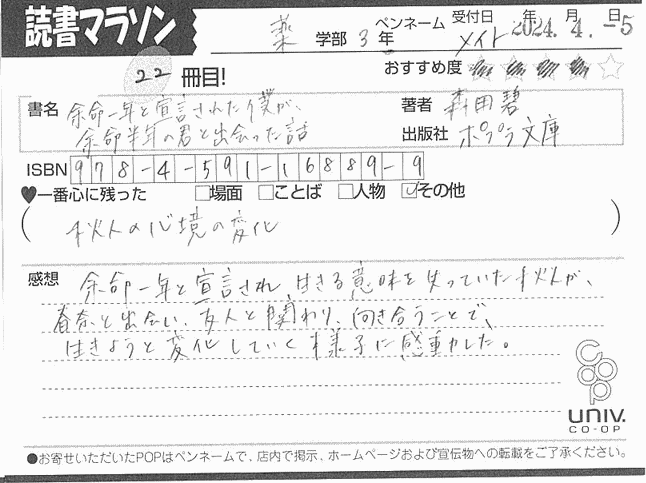 読書マラソン
薬 学部 3 年 ペンネーム メイト 受付日 年 月 日 2024. 4. -5
22 冊目! おすすめ度 ★★★★☆
書名 余命一年と宣言された僕が、
余命半年の君と出会った話
著者 森田碧
出版社 ポプラ文庫
ISBN 978-4-591-16889-9
♥一番心に残った □場面 □ことば □人物 ☑その他
(秋人の心境の変化)
感想 余命一年と宣言され、生きる意味を失っていた秋人が、
春奈と出会い、友人と関わり、向き合うことで、
生きようと変化していく様子に感動した。
coop
UNIV.
CO-OP
●お寄せいただいたPOPはペンネームで、店内で掲示、ホームページおよび宣伝物への転載をご了承ください。